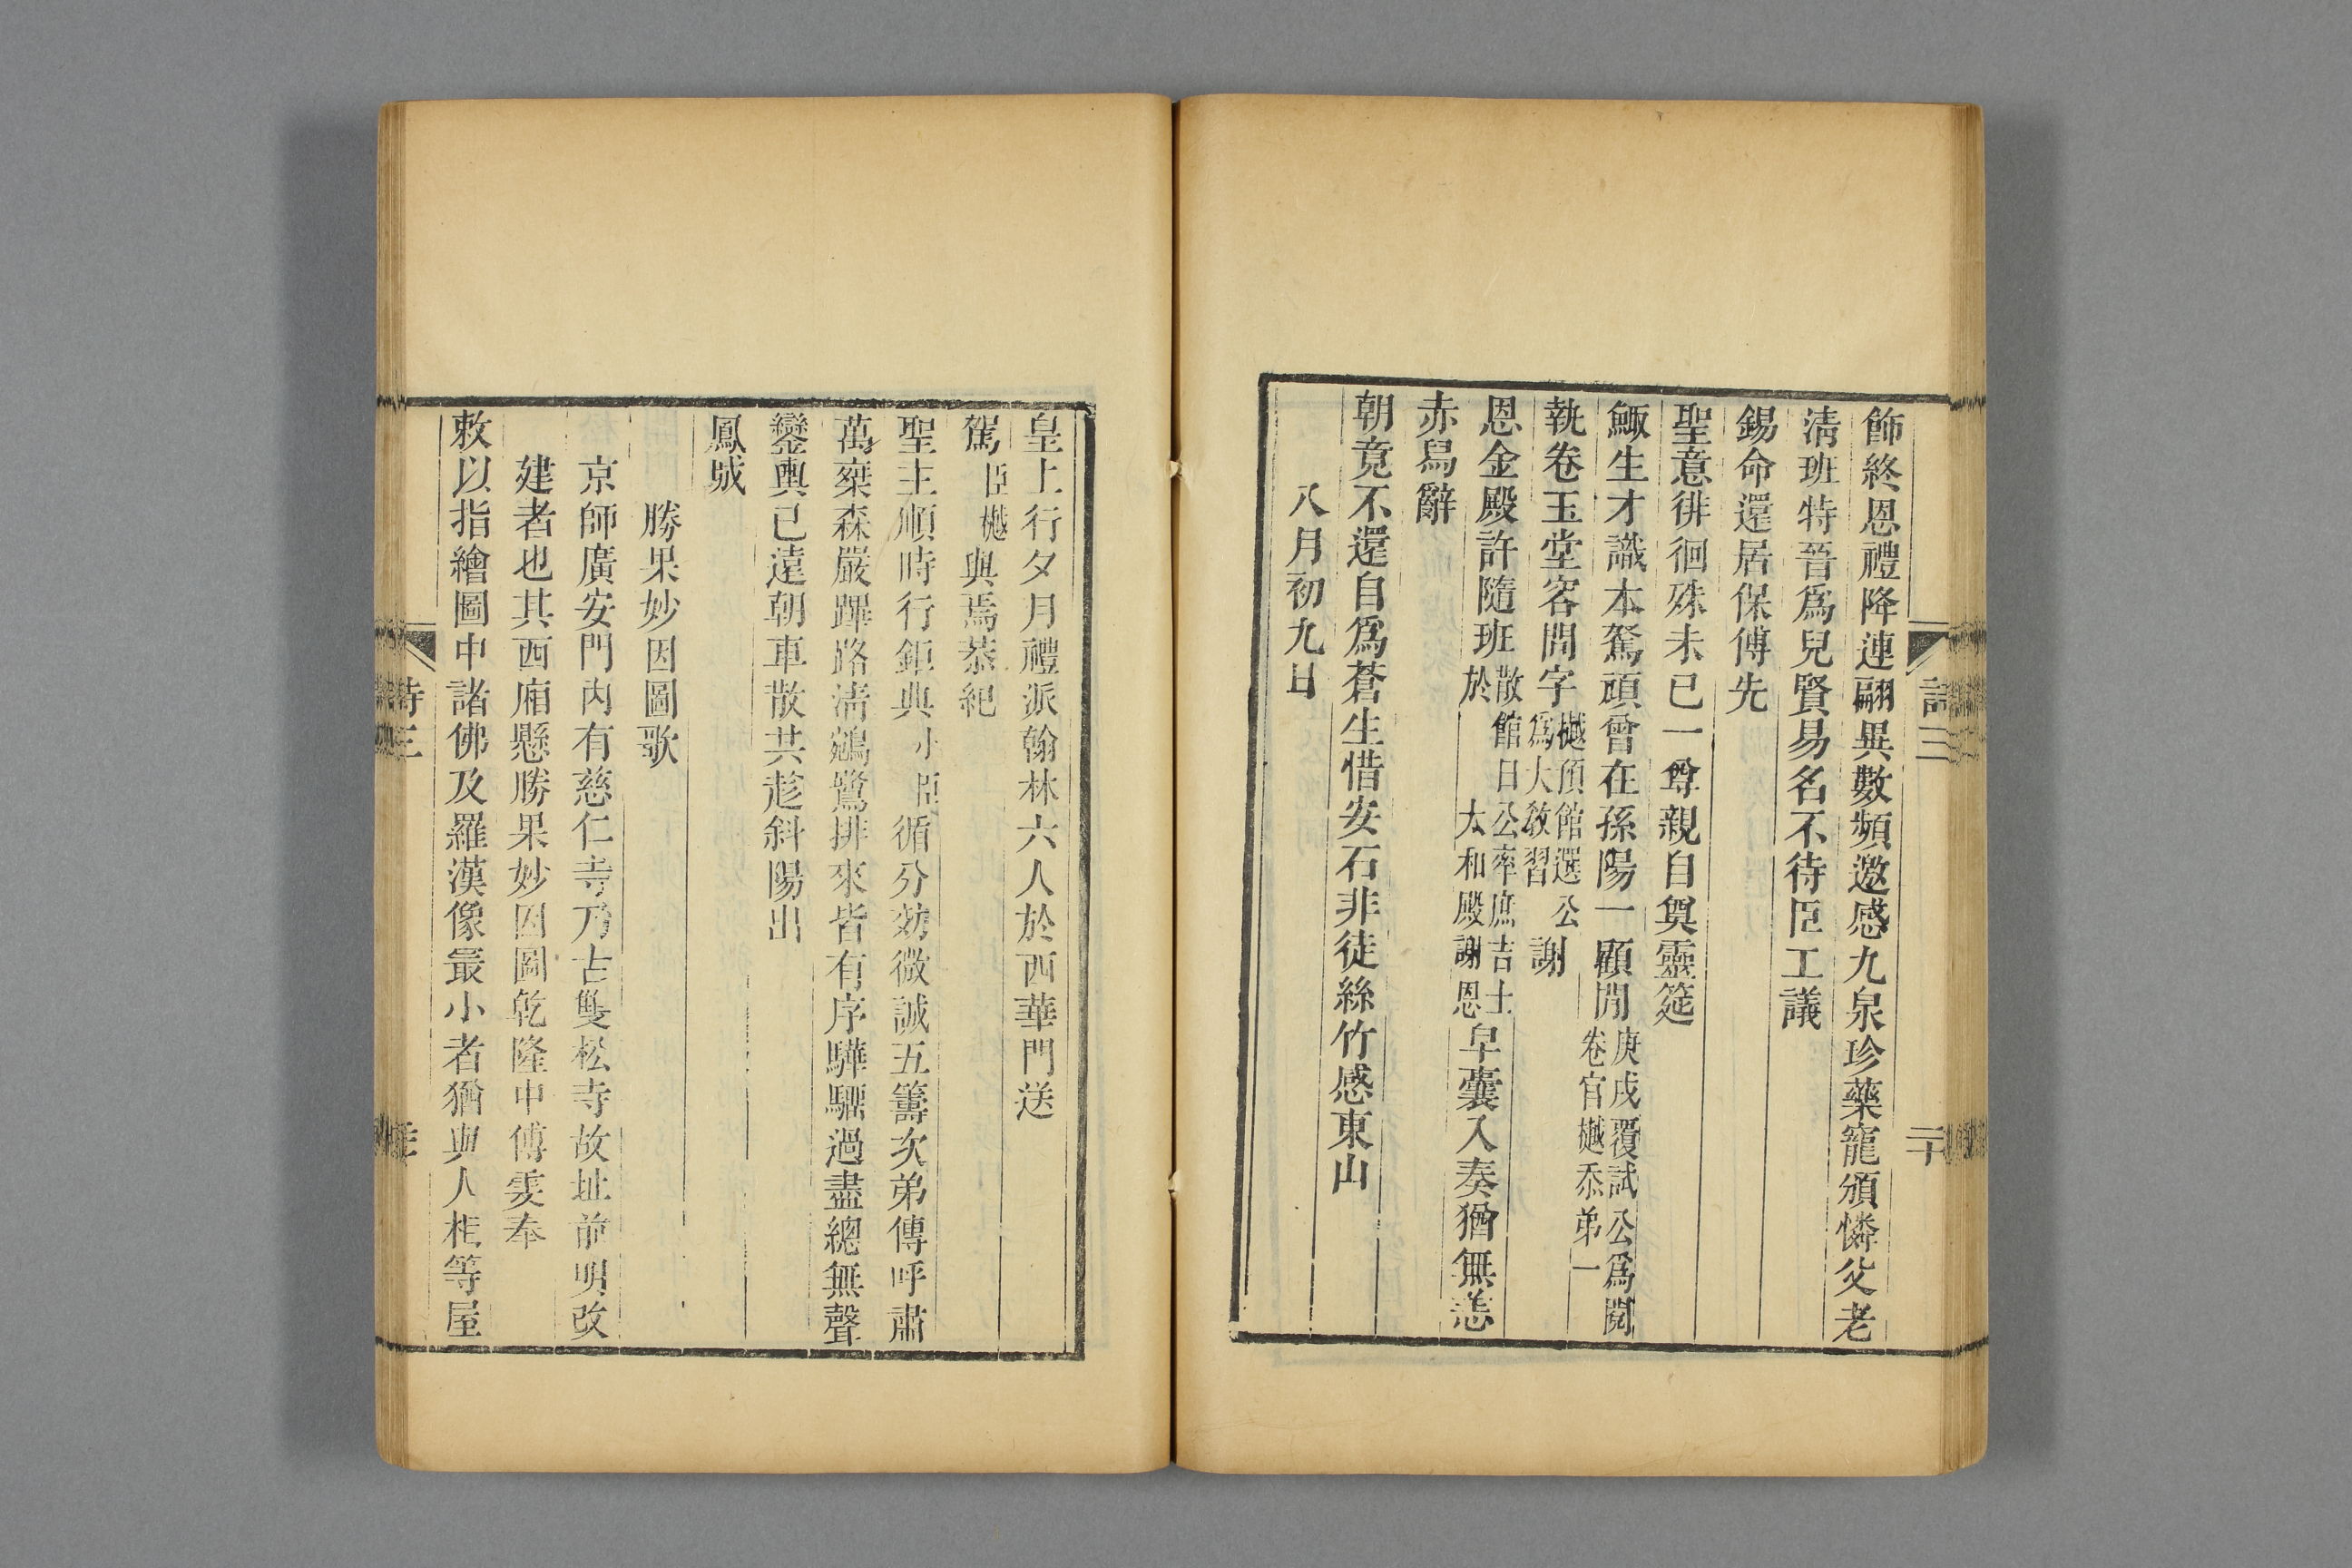 飾終恩禮降連翩異數頻邀感九泉珍藥寵頒憐父老
清班特晉爲兒賢易名不待臣工議
錫命還居保傅先
聖意徘徊殊未已一尊親自奠靈筵
鯫生才識本駑頑曾在孫陽一顧閒庚戌覆試公爲閱卷官樾忝弟一
執卷玉堂容問字樾預館選公爲大敎習謝
恩金殿許隨班散館日公率庶吉士於太和殿謝恩皁囊入奏猶無恙
赤舄辭
朝竟不還自爲蒼生惜安石非徒絲竹感東山
八月初九日
詩三
二十
皇上行夕月禮派翰林六人於西華門送
駕臣樾與焉恭紀
聖主順時行鉅典小臣循分効微誠五籌次弟傳呼肅
萬𣓉森嚴蹕路清鵷鷺排來皆有序驊騮過盡總無聲
鑾輿已遠朝車散共趁斜陽出
鳳城
勝果妙因圖歌
京師廣安門內有慈仁寺乃古雙松寺故址前明改
建者也其西廂懸勝果妙因圖乾隆中傅雯奉
敕以指繪圖中諸佛及羅漢像最小者猶與人相等屋
詩三